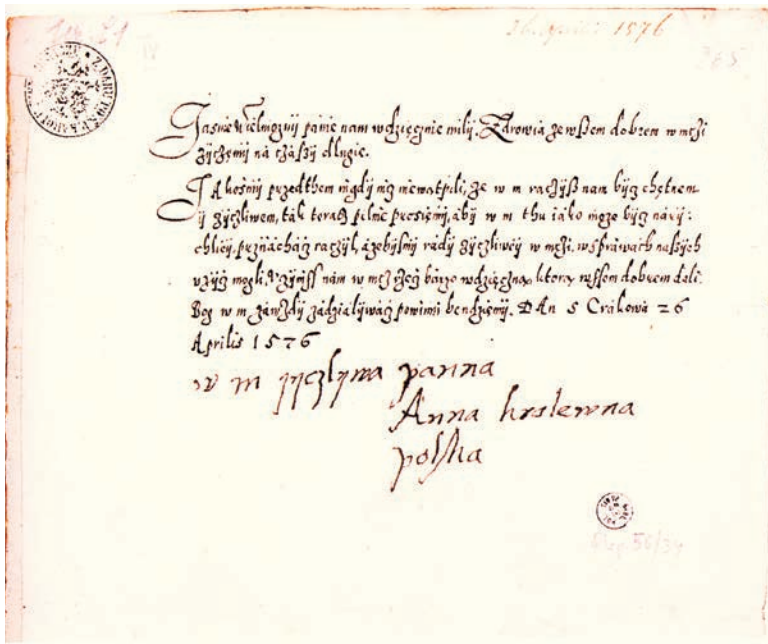 26 aprilis 1576
Jasnie Wielmoznij panie nam wdzięcznie milij. Zdrowia ze wssem dobrem w mczi
zijczęmij na czassij dlugie.
JAkosmij przedthem nigdij nicz niewatpili, ze w m raczijß nam bijcz chętnem
ij zijczliwem, tak teras pilnie prosięmij, abij w m thu iako moze bijcz narij:
chlieij, przijachacz raczijl, azebijsmij radij zijczliweij w mczi. w sprawach naßijch
vzijcz mogli. Vczijniss nam w mcz rzecz barzo wdzięczna, ktorą wssem dobrem dali
Bog w m zawzdij zadzialijwacz powinni bendziemij. DAn s Crakowa 26
Aprilis 1576
w m zyczlywa panna
Anna krolewna
polska